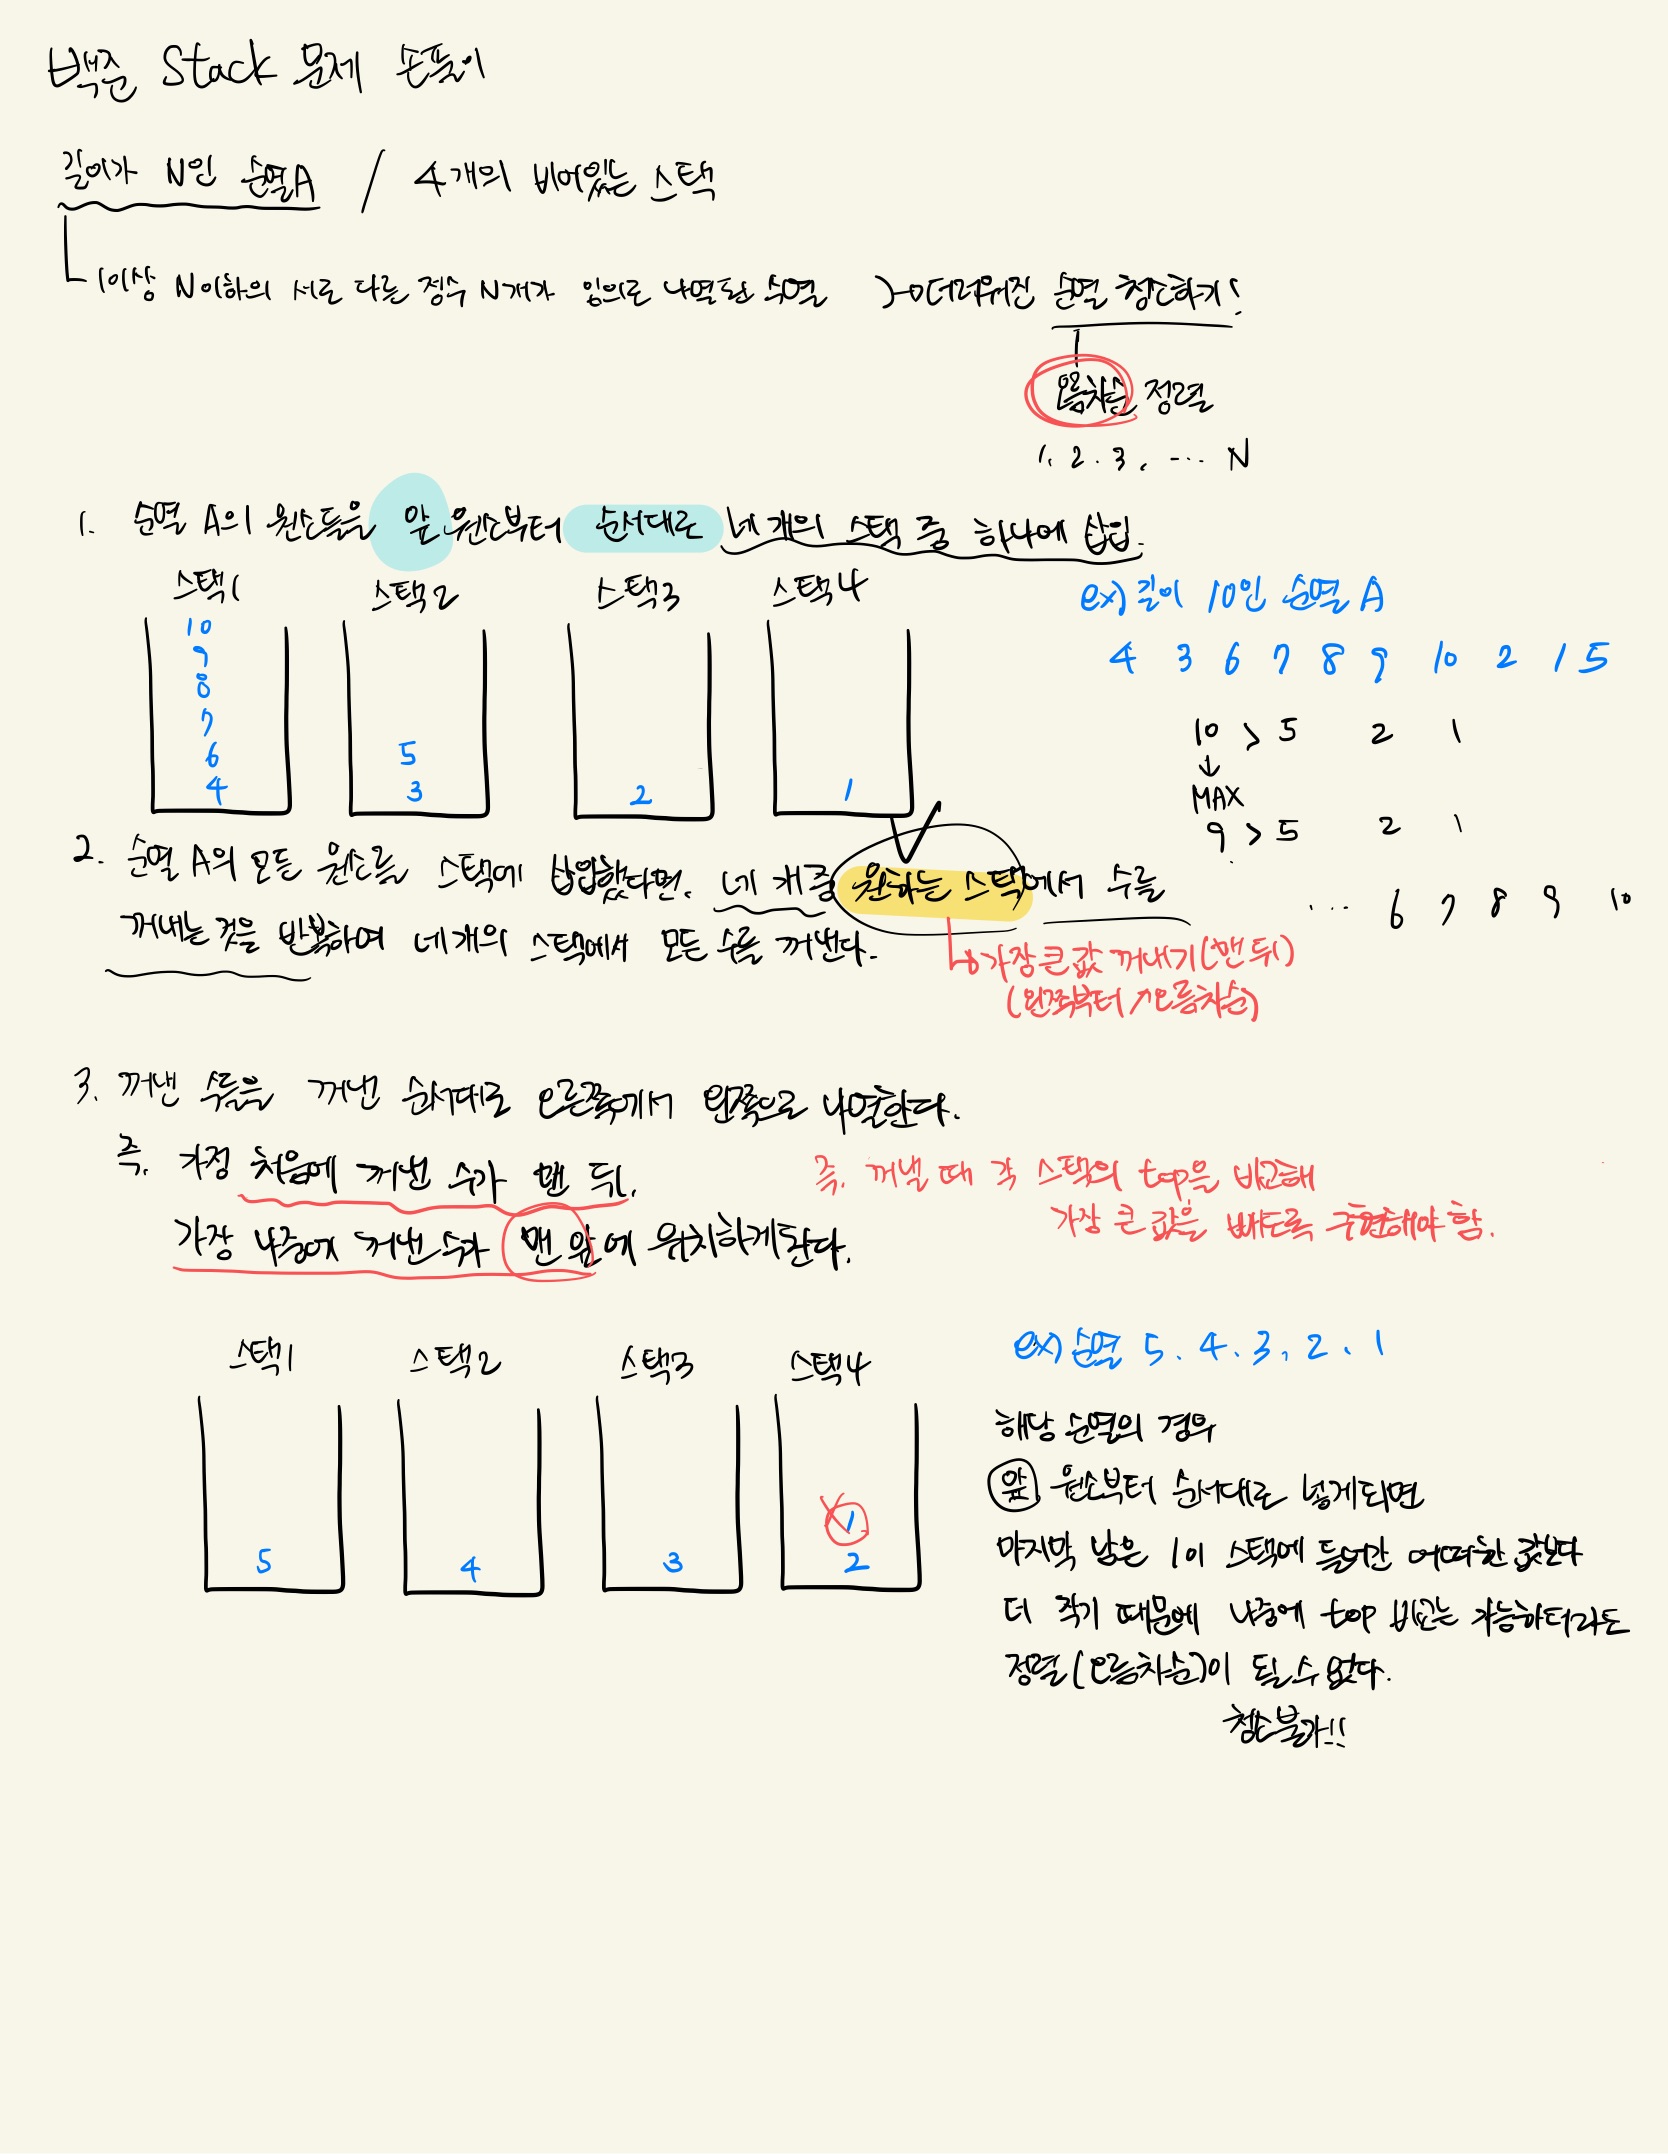 백준 Stack 문제 손풀이
길이가 N인 순열A / 4개의 비어있는 스택
1이상 N이하의 서로 다른 정수 N개가 임의로 나열된 수열 → 더러워진 순열 청소하기!
오름차순 정렬
1, 2, 3, ... N
1. 순열 A의 원소들을 앞 원소부터 순서대로 네 개의 스택 중 하나에 삽입.
스택1 스택2 스택3 스택4
10
9
8
7
6 5
4 3 2 1
ex) 길이 10인 순열 A
4 3 6 7 8 9 10 2 1 5
10 > 5 2 1
↓
MAX
9 > 5 2 1
... 6 7 8 9 10
2. 순열 A의 모든 원소를 스택에 삽입했다면, 네 개 중 원하는 스택에서 수를
꺼내는 것을 반복하여 네 개의 스택에서 모든 수를 꺼낸다.
→ 가장 큰 값 꺼내기 (맨 뒤)
(왼쪽부터 ↗오름차순)
3. 꺼낸 수들을 꺼낸 순서대로 오른쪽에서 왼쪽으로 나열한다.
즉, 가장 처음에 꺼낸 수가 맨 뒤,
가장 나중에 꺼낸 수가 맨 앞에 위치하게 된다.
즉, 꺼낼 때 각 스택의 top을 비교해
가장 큰 값을 빼도록 구현해야 함.
스택1 스택2 스택3 스택4
1
5 4 3 2
ex) 순열 5, 4, 3, 2, 1
해당 순열의 경우
앞 원소부터 순서대로 넣게되면
마지막 남은 1이 스택에 들어간 어떠한 값보다
더 작기 때문에 나중에 top 비교는 가능하더라도
정렬(오름차순)이 될 수 없다.
청소불가!!